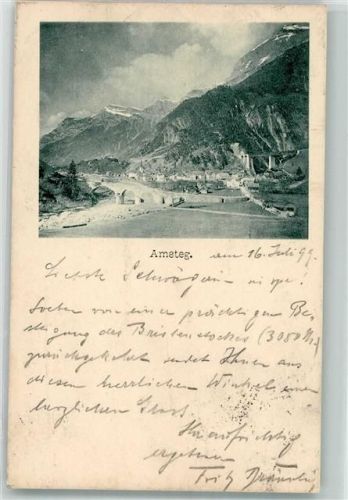 Amsteg.
am 16. Juli 99.
Liebste Schwägerin
Soeben von einer prächtigen Be-
steigung des Bristenstockes (3000 M.)
zurückgekehrt sendet Ihnen aus
diesem herrlichen Winkel einen
herzlichen Gruss.
Ihr aufrichtig
ergebener
Fritz